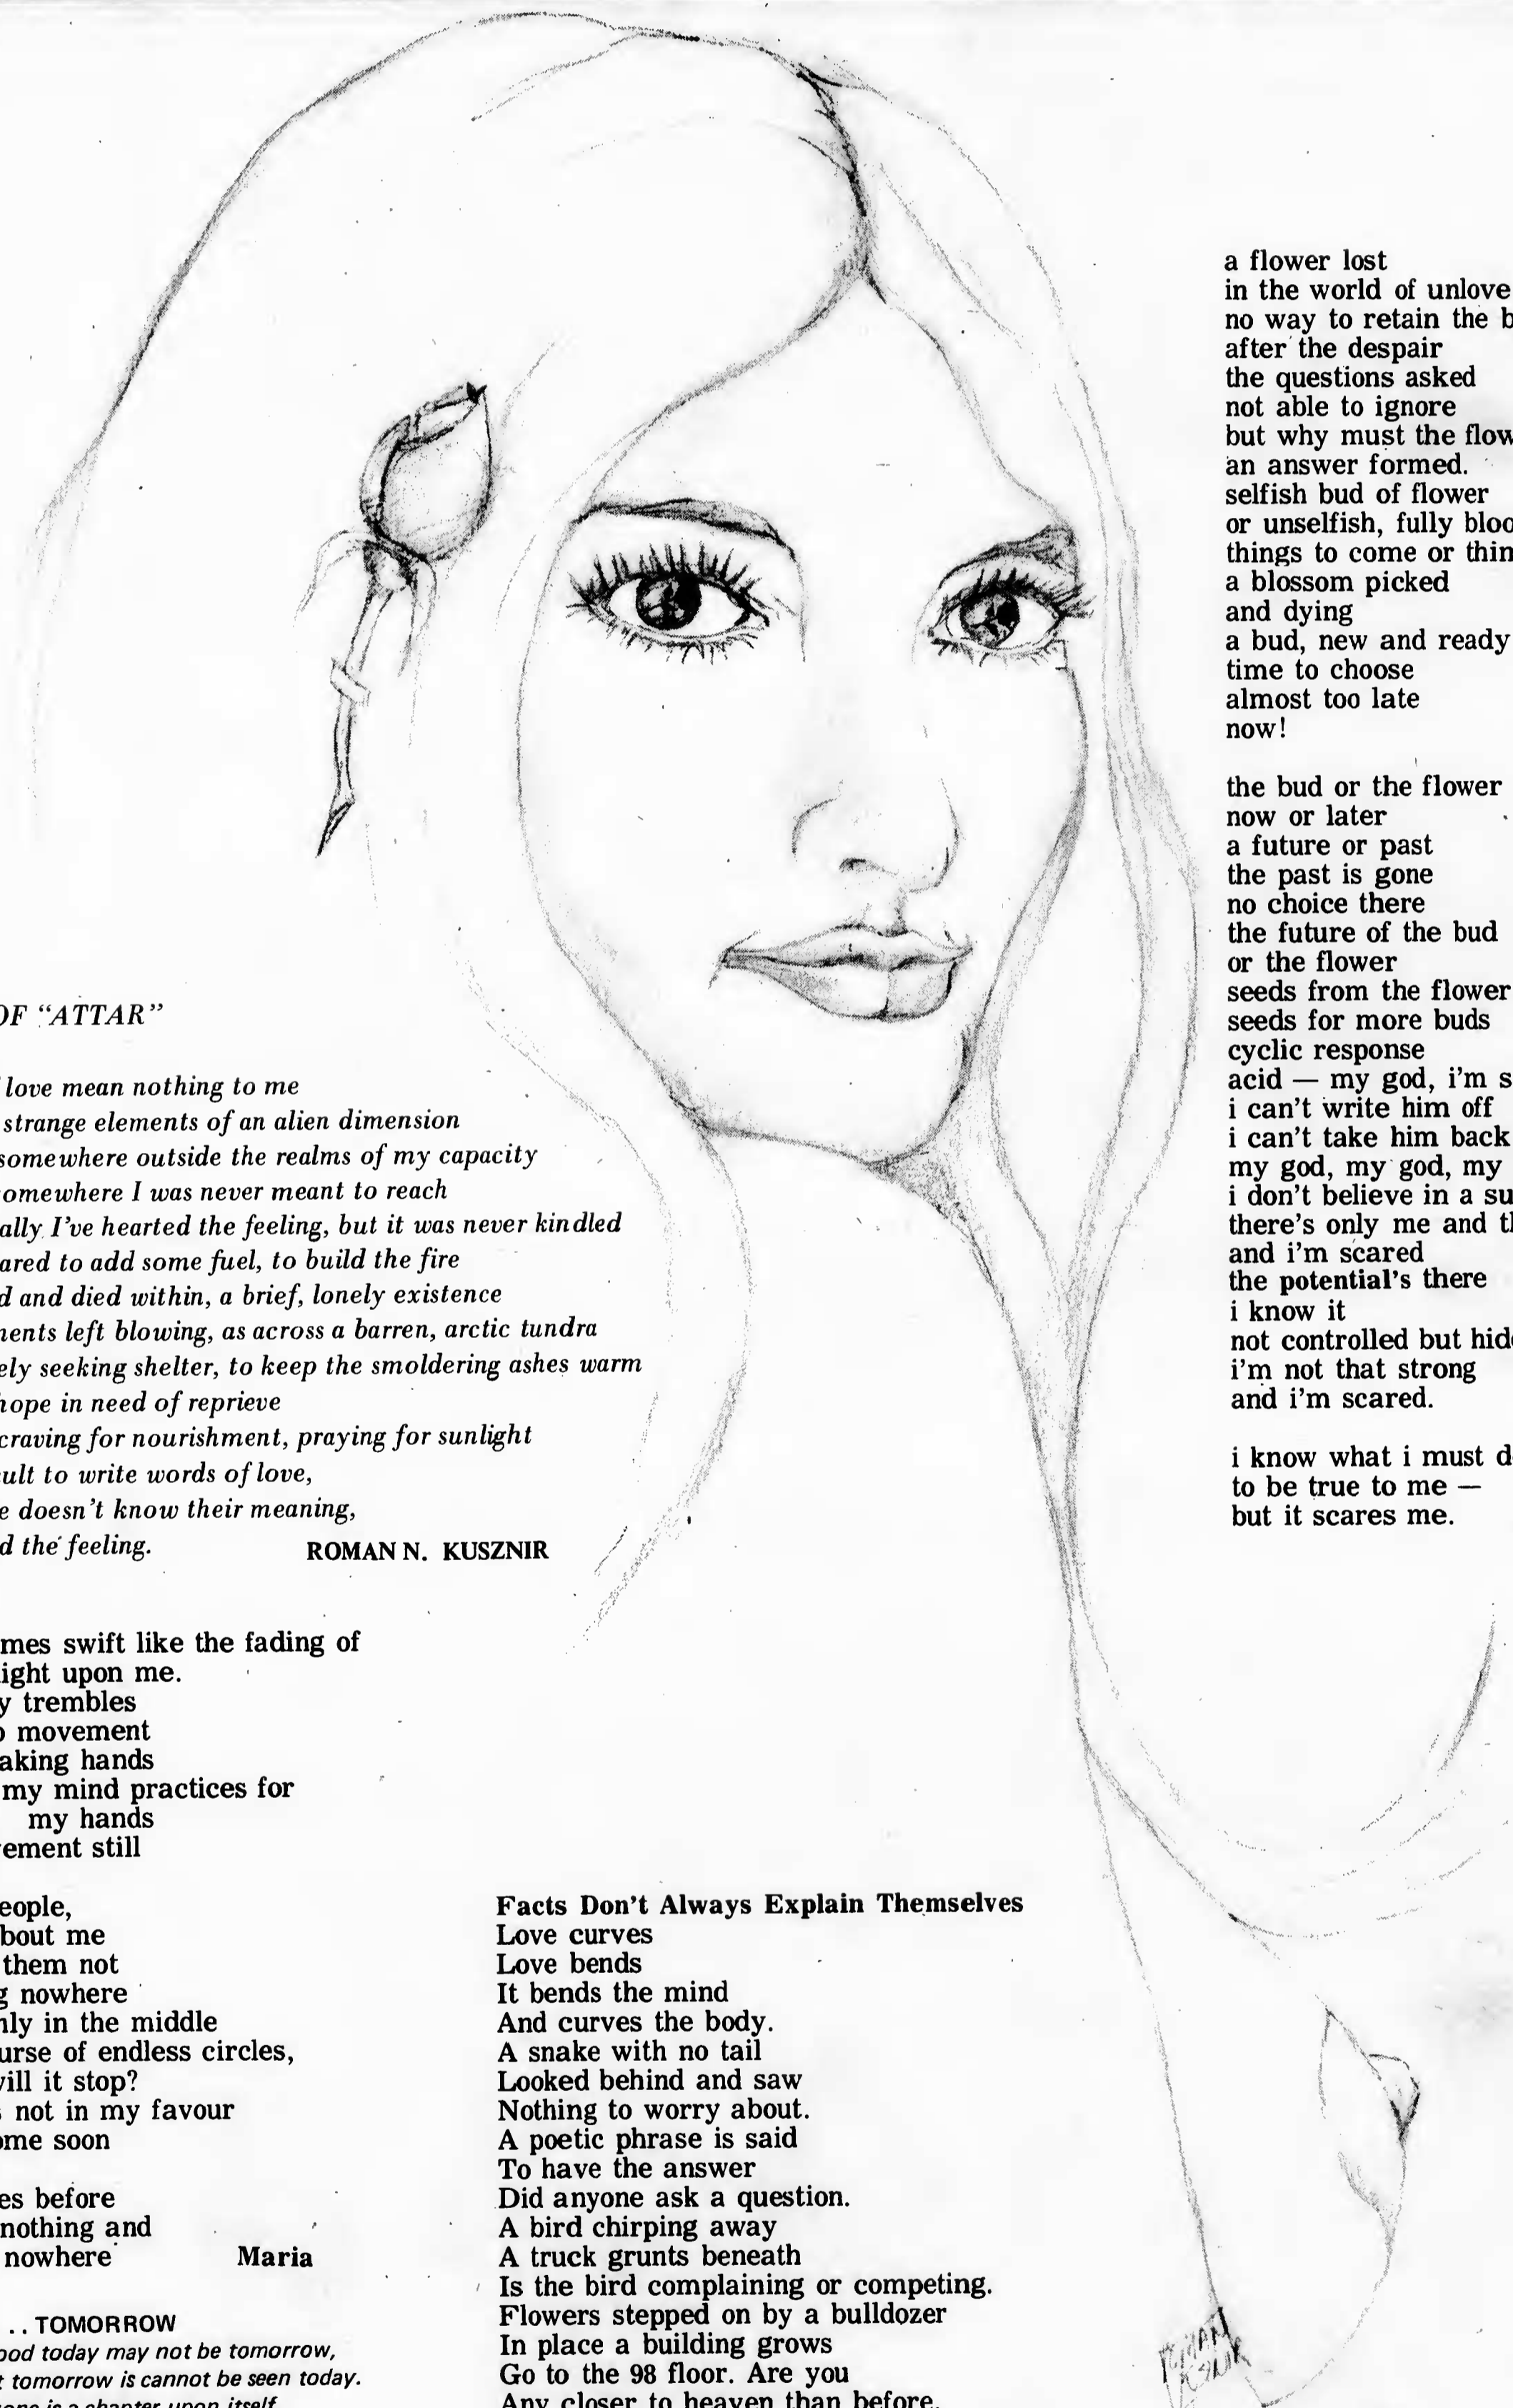 OF "ATTAR"
love mean nothing to me
strange elements of an alien dimension
somewhere outside the realms of my capacity
omewhere I was never meant to reach
ally I've hearted the feeling, but it was never kindled
ared to add some fuel, to build the fire
d and died within, a brief, lonely existence
nents left blowing, as across a barren, arctic tundra
ely seeking shelter, to keep the smoldering ashes warm
hope in need of reprieve
craving for nourishment, praying for sunlight
ult to write words of love,
e doesn't know their meaning,
d the feeling.
ROMAN N. KUSZNIR
mes swift like the fading of
ight upon me.
y trembles
o movement
aking hands
my mind practices for
my hands
ement still
eople,
bout me
them not
g nowhere
nly in the middle
urse of endless circles,
vill it stop?
s not in my favour
ome soon
es before
nothing and
nowhere
Maria
. . TOMORROW
ood today may not be tomorrow,
t tomorrow is cannot be seen today.
one is a chapter upon itself
Facts Don't Always Explain Themselves
Love curves
Love bends
It bends the mind
And curves the body.
A snake with no tail
Looked behind and saw
Nothing to worry about.
A poetic phrase is said
To have the answer
Did anyone ask a question.
A bird chirping away
A truck grunts beneath
Is the bird complaining or competing.
Flowers stepped on by a bulldozer
In place a building grows
Go to the 98 floor. Are you
Any closer to heaven than before.
a flower lost
in the world of unlove
no way to retain the b
after the despair
the questions asked
not able to ignore
but why must the flow
an answer formed.
selfish bud of flower
or unselfish, fully bloo
things to come or thin
a blossom picked
and dying
a bud, new and ready
time to choose
almost too late
now!
the bud or the flower
now or later
a future or past
the past is gone
no choice there
the future of the bud
or the flower
seeds from the flower
seeds for more buds
cyclic response
acid — my god, i'm s
i can't write him off
i can't take him back
my god, my god, my
i don't believe in a su
there's only me and th
and i'm scared
the potential's there
i know it
not controlled but hid
i'm not that strong
and i'm scared.
i know what i must d
to be true to me —
but it scares me.